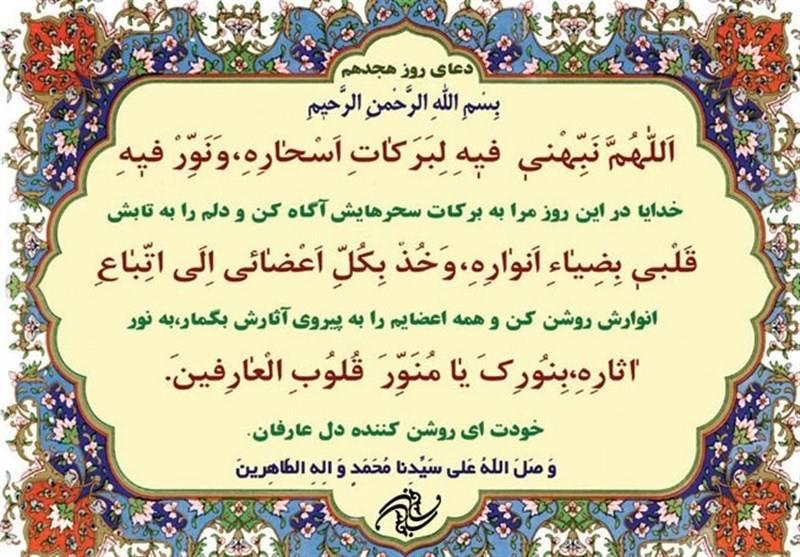 دعای روز هجدهم
بِسْمِ اللهِ الرَّحْمنِ الرَّحیمِ
اَللّهُمَّ نَبِّهْنی فیهِ لِبَرَکاتِ اَسْحارِهِ،وَنَوِّرْ فیهِ
خدایا در این روز مرا به برکات سحرهایش آگاه کن و دلم را به تابش
قَلْبی بِضِیاءِ اَنوارِهِ،وَخُذْ بِکُلِّ اَعْضائی اِلَی اتِّباعِ
انوارش روشن کن و همه اعضایم را به پیروی آثارش بگمار،به نور
اثارِهِ،بِنُورِکَ یا مُنَوِّرَ قُلُوبِ الْعارِفینَ.
خودت ای روشن کننده دل عارفان.
وَ صَلَ اللهُ عَلی سَیِّدنا مُحَمَدٍ وَ الِهِ الطاهِرینَ